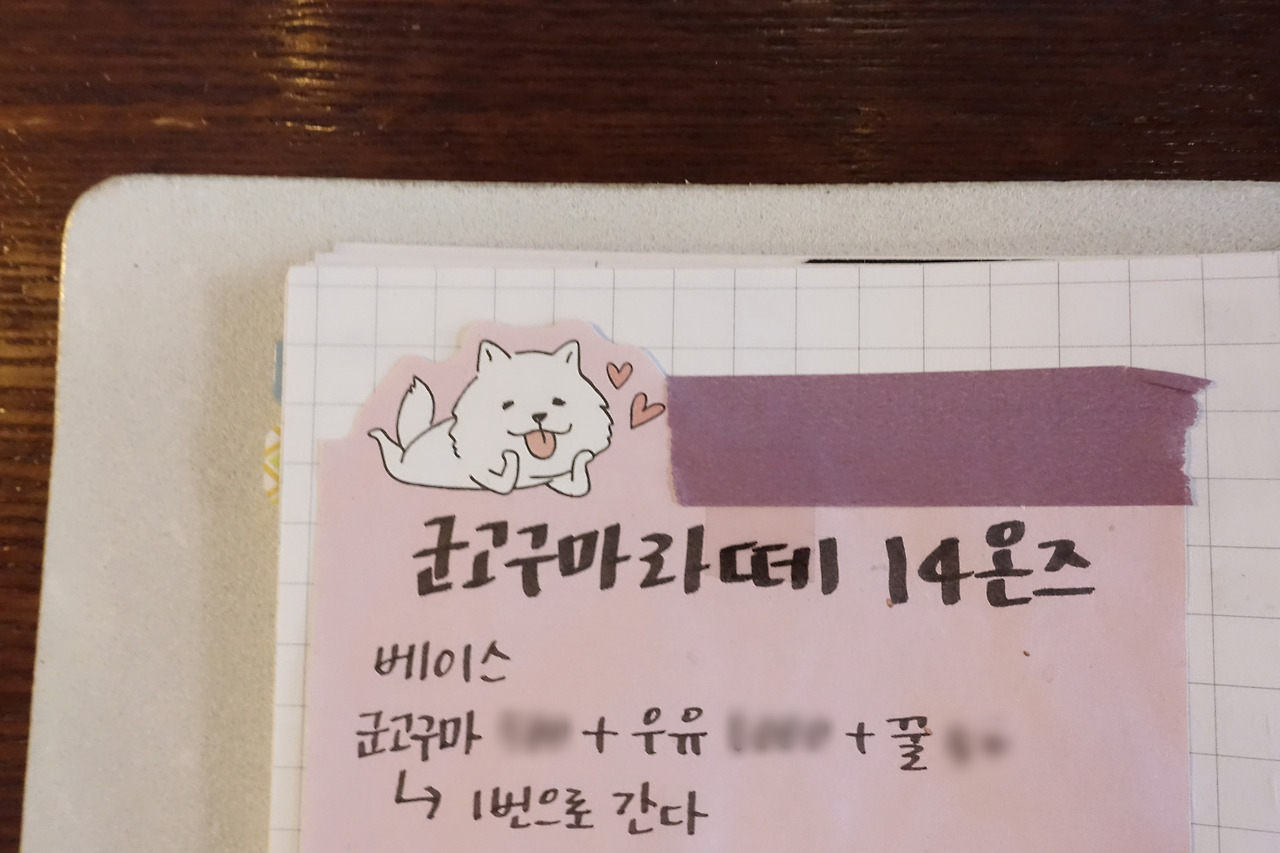 군고구마라떼 14온즈
베이스
군고구마 + 우유 + 꿀
↳ 1번으로 간다